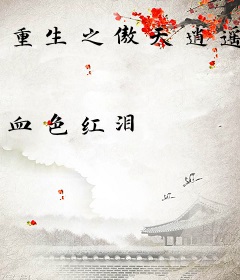 重生之傲天逍遥
血色红泪